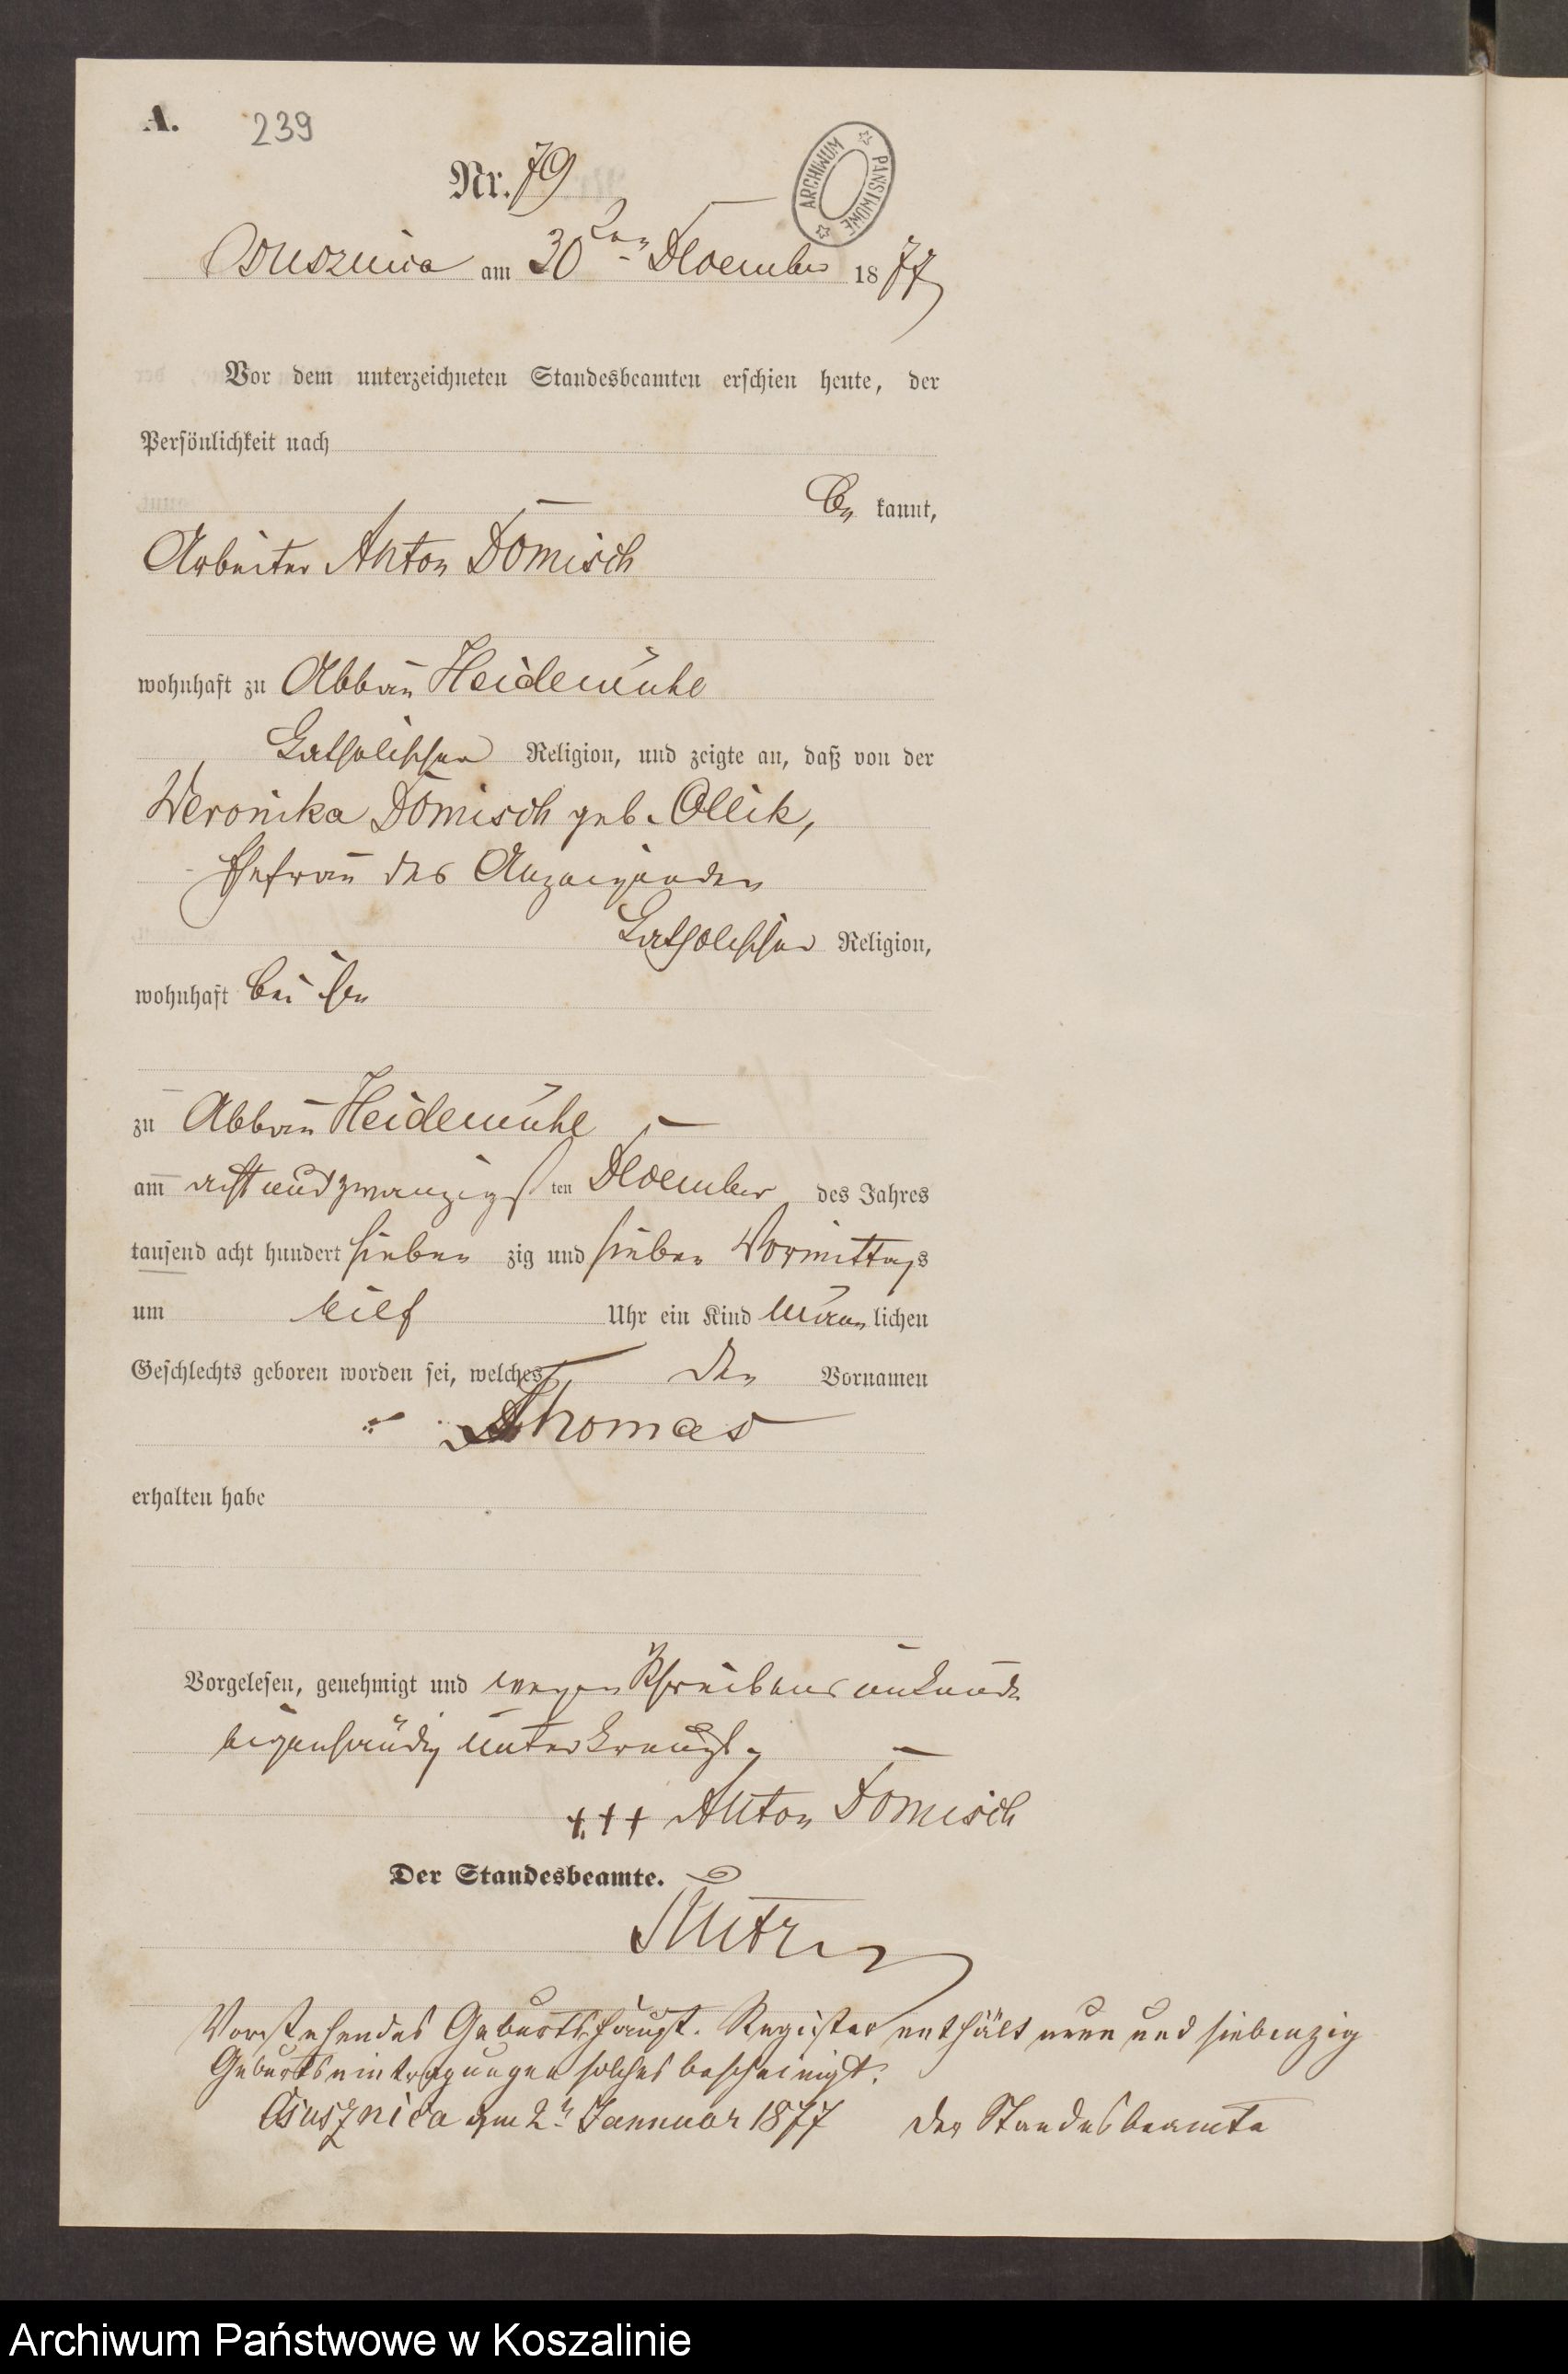 A. 239
Nr. 79
ARCHIWUM PAŃSTWOWE
Ossusznica am 30ten December 1877
Vor dem unterzeichneten Standesbeamten erschien heute, der
Persönlichkeit nach
be kannt,
Arbeiter Anton Domisch
wohnhaft zu Abbau Heidemühl
katholischer Religion, und zeigte an, daß von der
Weronika Domisch geb. Ollik,
Ehefrau des Anzeigenden
katholischer Religion,
wohnhaft bei ihm
zu Abbau Heidemühl
am acht und zwanzigsten December des Jahres
tausend acht hundert sieben zig und sieben Vormittags
um eilf Uhr ein Kind männlichen
Geschlechts geboren worden sei, welches den Vornamen
Thomas
erhalten habe
Vorgelesen, genehmigt und wegen Schreibensunkunde
eigenhändig unterkreuzt.
+++ Anton Domisch
Der Standesbeamte.
Vorstehendes Geburtshaupt. Register enthält neun und siebenzig
Geburtseintragungen solches bescheinigt.
am 2t Jannuar 1877 Der Standesbeamte
Archiwum Państwowe w Koszalinie